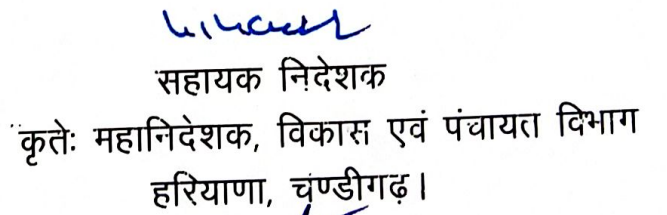 सहायक निदेशक
कृतेः महानिदेशक, विकास एवं पंचायत विभाग
हरियाणा, चण्डीगढ़।